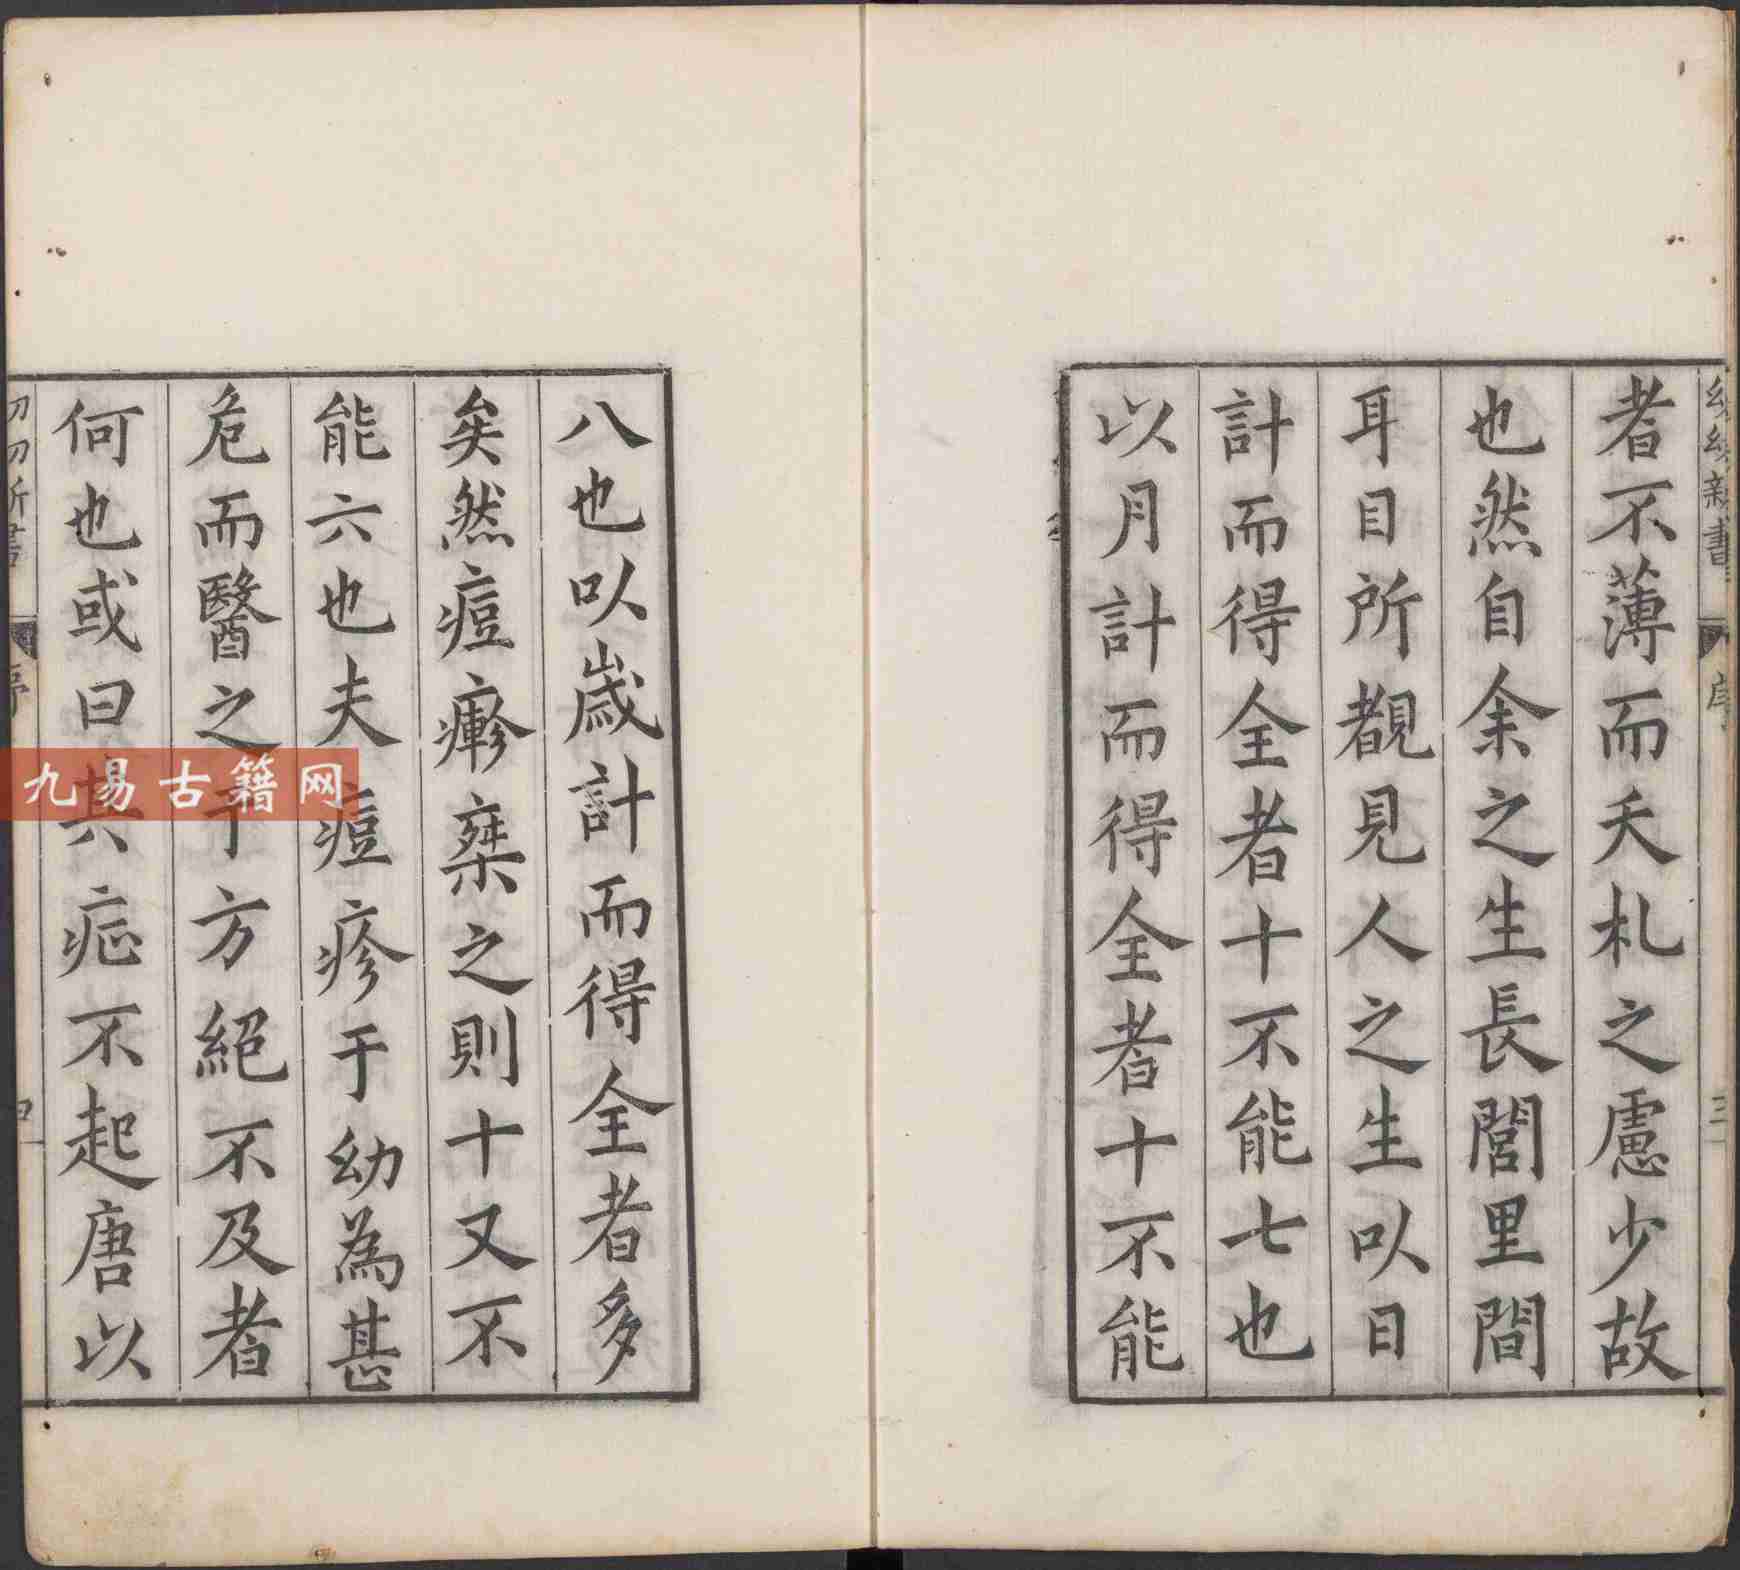 幼幼新書
序
三
者不薄而夭札之慮少故
也然自余之生長閭里間
耳目所覩見人之生以日
計而得全者十不能七也
以月計而得全者十不能
八也以歲計而得全者多
矣然痘㾣槩之則十又不
能六也夫痘疹于幼為甚
危而醫之于方絕不及者
何也或曰其症不起唐以
序
四
九易古籍网